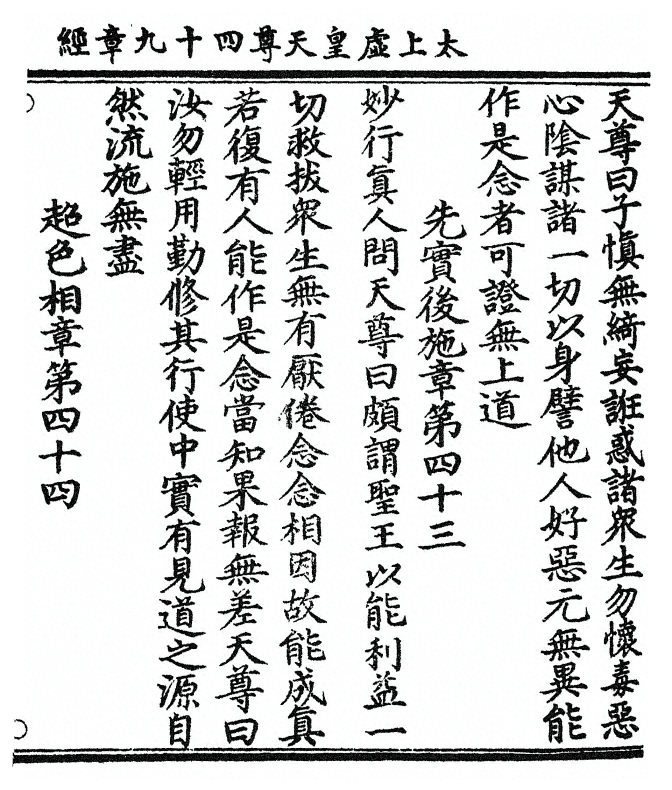 太上虛皇天尊四十九章經
天尊曰子慎無綺妄誑惑諸衆生勿懷毒惡
心陰謀諸一切以身譬他人好惡元無異能
作是念者可證無上道
先實後施章第四十三
妙行眞人問天尊曰頗謂聖王以能利益一
切救拔衆生無有厭倦念念相因故能成眞
若復有人能作是念當知果報無差天尊曰
汝勿輕用勤修其行使中實有見道之源自
然流施無盡
超色相章第四十四